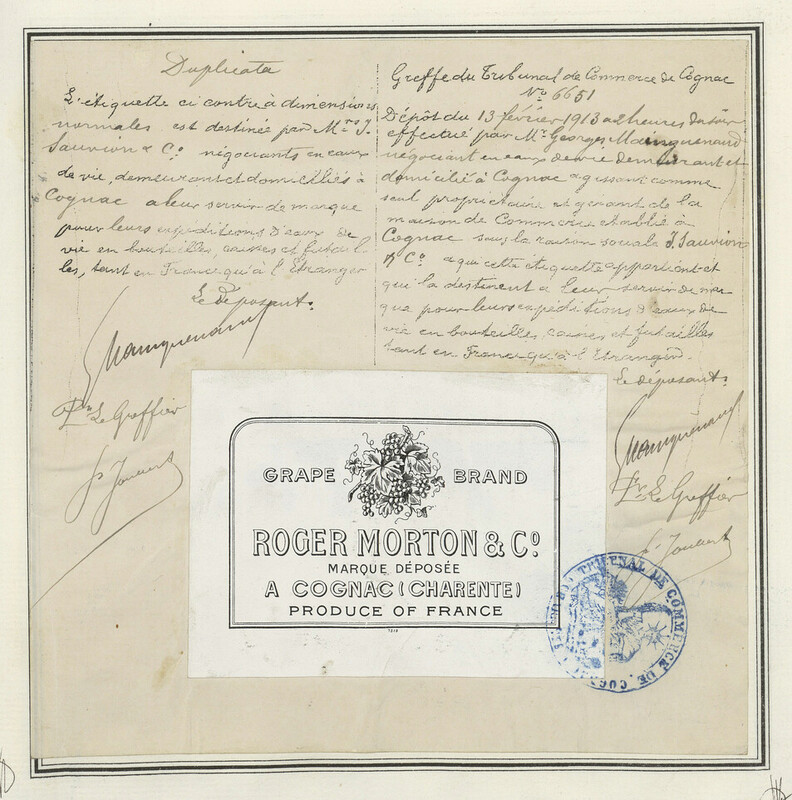 Duplicata
L'étiquette ci contre à dimensions
normales est destinée par Mrs J.
Sauvion & Co. négociants en eaux
de vie, demeurant et domiciliés à
Cognac a leur servir de marque
pour leurs expéditions d'eaux de
vie en bouteilles, caisses et futail
les, tant en France qu'à l'Etranger
Le déposant.
Mainguenaud
Pr. Le Greffier
Greffe du Tribunal de Commerce de Cognac
No 6651
Dépôt du 13 février 1913 a 2 heures du soir
effectué par Mr. Georges Mainguenaud
négociant en eaux de vie demeurant et
domicilié à Cognac agissant comme
seul propriétaire et gérant de la
maison de Commerce établie à
Cognac sous la raison sociale J. Sauvion
& Co. a qui cette étiquette appartient et
qui la destinent a leur servir de mar
que pour leurs expéditions d'eaux de
vie en bouteilles, caisses et futailles
tant en France qu'à l'Etranger.
Le déposant.
Mainguenaud
Pr. Le Greffier
GRAPE BRAND
ROGER MORTON & Co
MARQUE DÉPOSÉE
A COGNAC (CHARENTE)
PRODUCE OF FRANCE
TRIBUNAL DE COMMERCE DE COGNAC